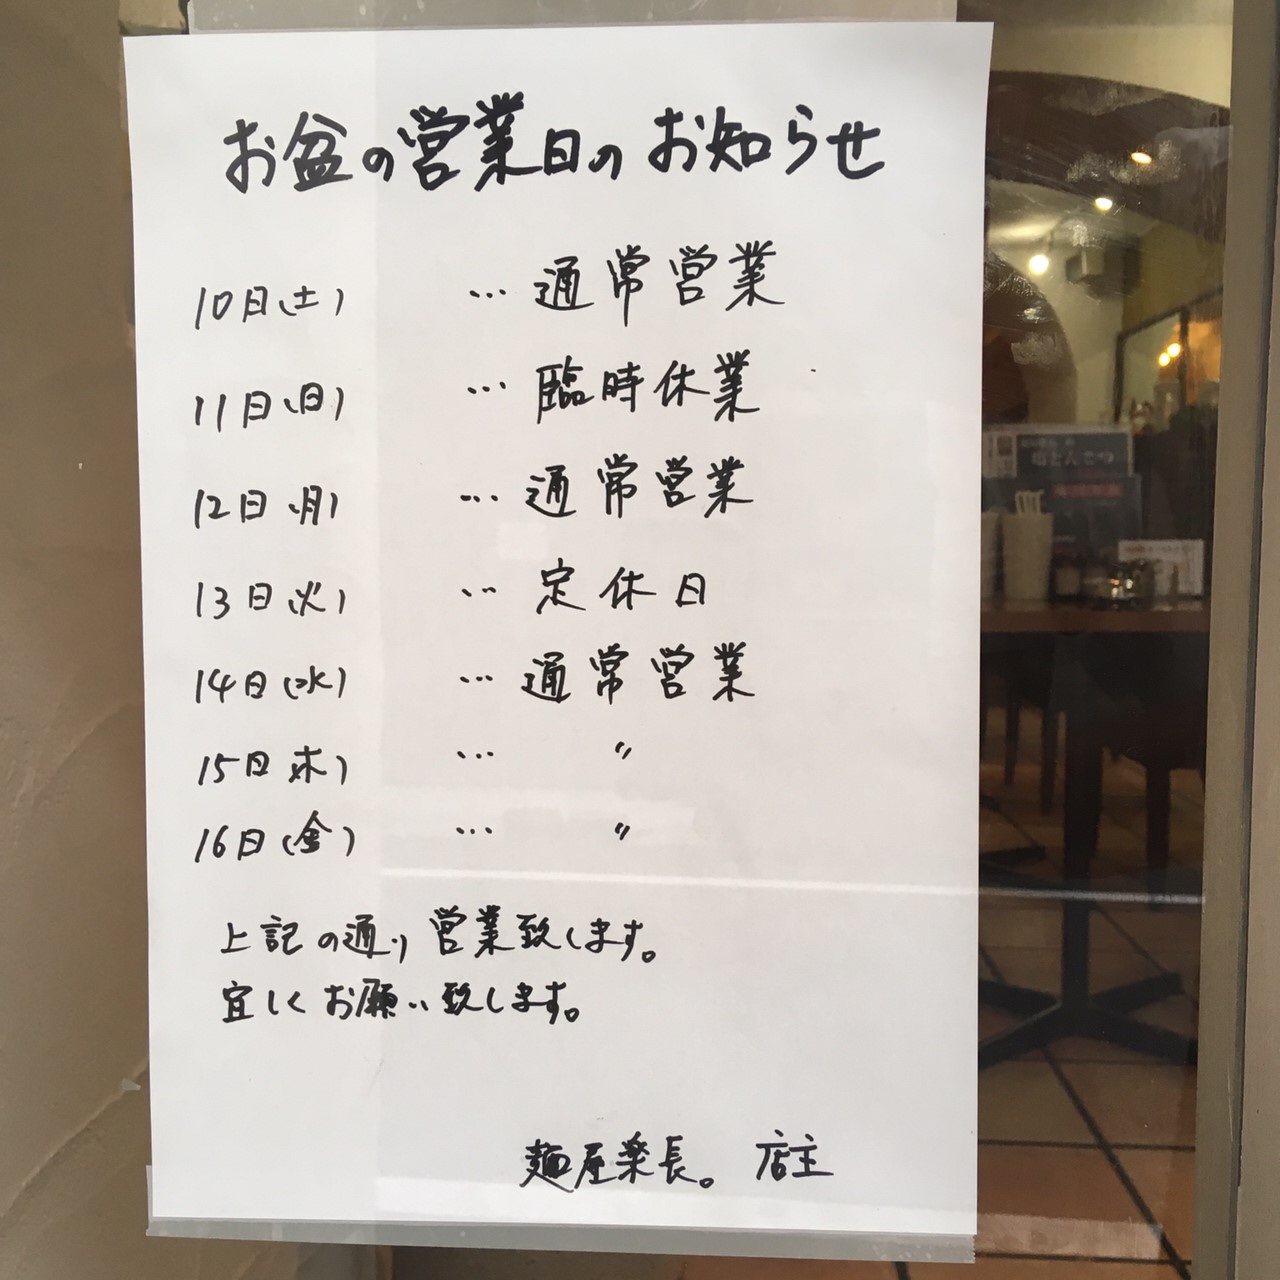 お盆の営業日のお知らせ
10日(土) … 通常営業
11日(日) … 臨時休業
12日(月) … 通常営業
13日(火) … 定休日
14日(水) … 通常営業
15日(木) … 〃
16日(金) … 〃
上記の通り営業致します。
宜しくお願い致します。
麺屋楽長。 店主